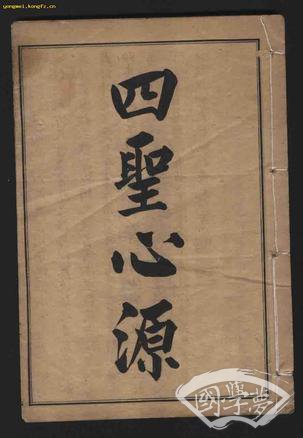 yongwei.kongfz.cn
四聖心源
國學夢